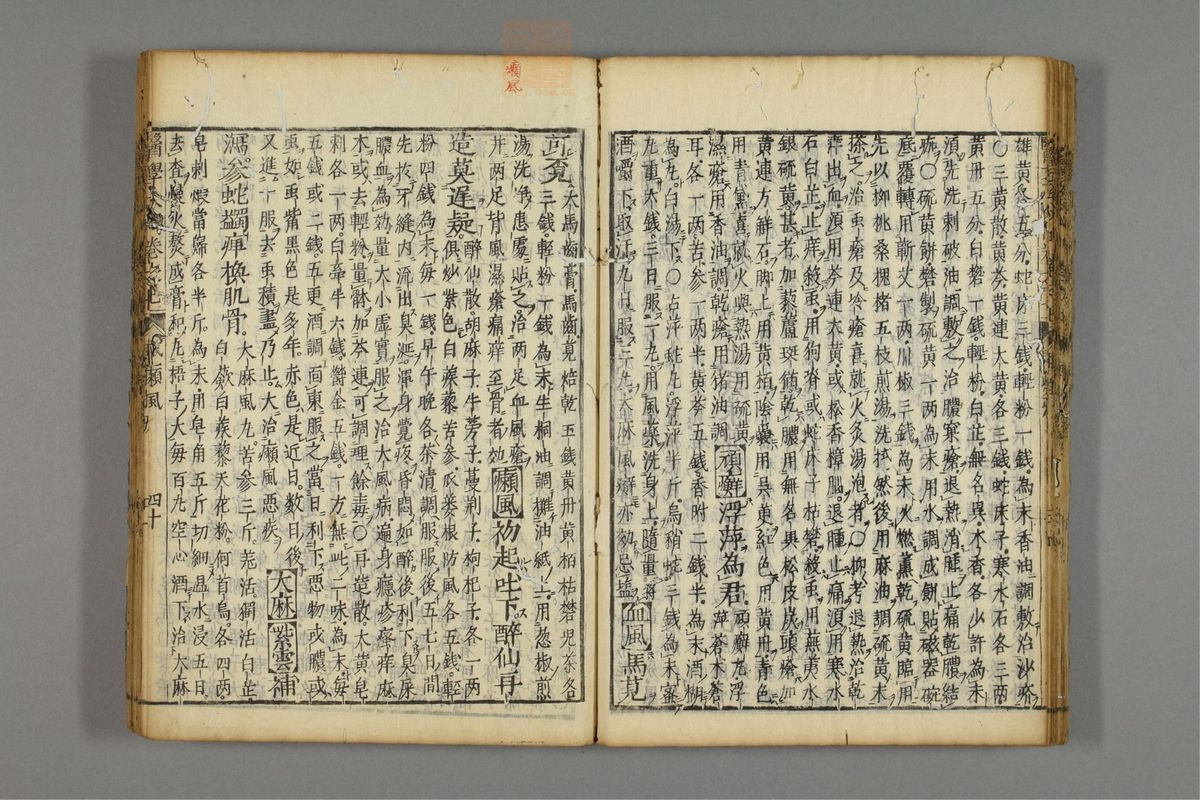 雄黃各五分蛇床三錢輕粉一錢為末香油調敷治沙疥
〇三黃散黃芩黃連大黃各三錢蛇床子寒水石各三兩
黃丹五分白礬一錢輕粉白芷無名異木香各少許為末
須先洗刺破油調敷之治膿窠瘡退熱消腫止痛乾膿結
痂〇硫黃餅礬製硫黃一兩為末用水調成餅貼磁器碗
底覆轉用蘄艾一兩川椒三錢為末火燃薰乾硫黃臨用
先以柳桃桑槐楮五枝煎湯洗拭然後用麻油調硫黃末
搽之治蟲瘡及冷瘡喜就火灸湯泡者〇抑考退熱治乾
疥出血須用芩連大黃或松香樟腦退腫止痛須用寒水
石白芷止痒殺蟲用狗脊或蛇床子枯礬殺蟲用蕪荑水
銀硫黃甚者加藜蘆斑猫乾膿用無名異松皮炭頭瘡加
黃連方解石脚上用黃栢陰囊用吳茱紅色用黃丹青色
用青黛喜就火與熱湯用硫黃
濕瘡用香油調乾瘡用猪油調
頑癬浮萍為君
頑癬丸浮
萍蒼木蒼
耳各一兩苦參一兩半黃芩五錢香附二錢半為末酒糊
為丸白湯下〇古萍蛇丸浮萍半斤烏稍蛇二錢為末蜜
丸重六錢三日服一丸用風藥洗身上隨量將
酒嚼下取汗九日服三丸大麻風癬亦効忌鹽
血風馬莧
可覓
大馬齒膏馬齒莧焙乾五錢黃丹黃柏枯礬兒茶各
三錢輕粉一錢為末生桐油調攤油紙上用葱椒煎
湯洗淨患處貼之治兩足血風瘡
并兩足背風濕瘡痛痒至骨者効
癩風初起吐下醉仙丹
造莫遲疑
醉仙散胡麻子牛蒡子蔓荆子枸杞子各一兩
俱炒紫色白蒺藜苦參瓜蔞根防風各五錢輕
粉四錢為末每一錢早午晚各茶清調服服後五七日間
先於牙縫內流出臭涎渾身覺疼昏悶如醉後利下臭屎
膿血為効量大小虛實服之治大風病遍身癮疹痒麻
木或去輕粉量病加芩連可調理餘毒〇再造散大黃皂
刺各一兩白牽牛六錢欝金五錢一方無此二味為末每
五錢或二錢五更酒調面東服之當日利下惡物或膿或
蟲如蟲紫黑色是多年赤色是近日數日後
又進一服去蟲積盡乃止大治癩風惡疾
大麻紫雲補
瀉參蛇蠲痹換肌骨
大麻風丸苦參三斤羌活獨活白芷
白歛白蒺藜天花粉何首烏各四兩
皂刺煨當歸各半斤為末用皂角五斤切細溫水浸五日
去查慢火熬成膏和丸梧子大每百丸空心酒下治大麻
醫學 卷之七 癩風 四十
癩風